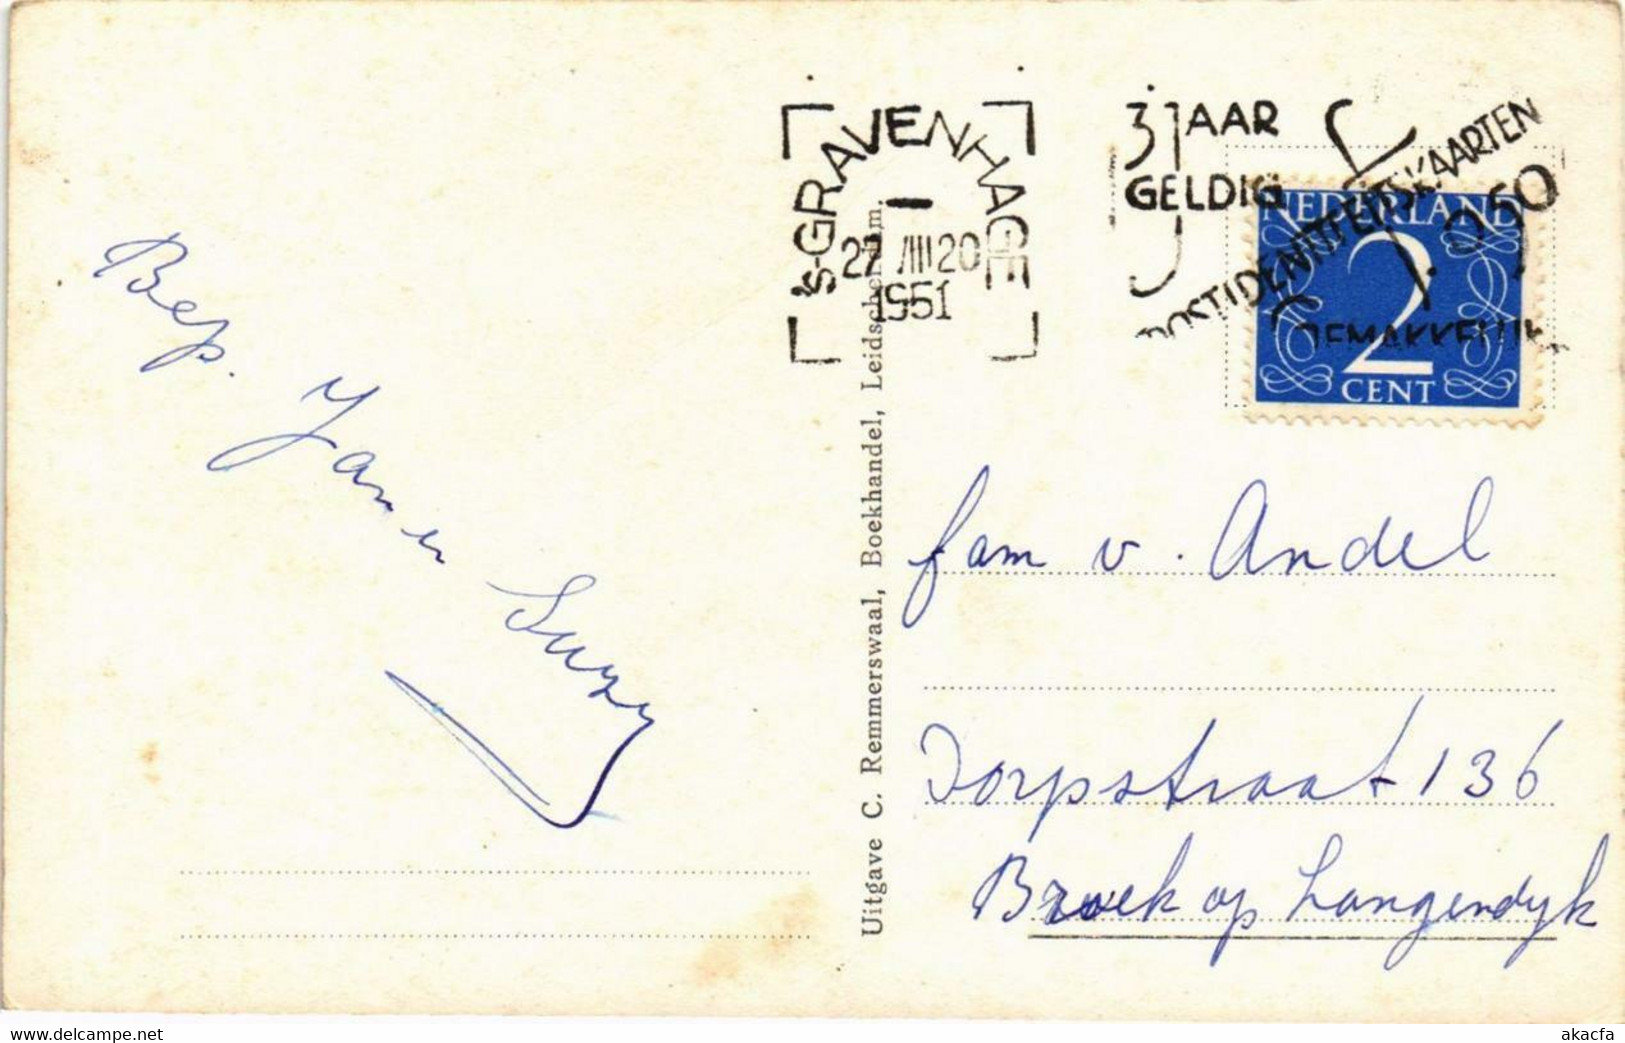 's-GRAVENHAGE
27 VIII 20
1951
3 JAAR
GELDIG
POSTIDENTITEITSKAARTEN
GEMAKKELIJK
NEDERLAND
2
CENT
Bep.
Jan en
Suzy
Uitgave C. Remmerswaal, Boekhandel, Leidschendam.
fam v. Andel
Dorpstraat 136
Broek op Langendyk
www.delcampe.net
akacfa